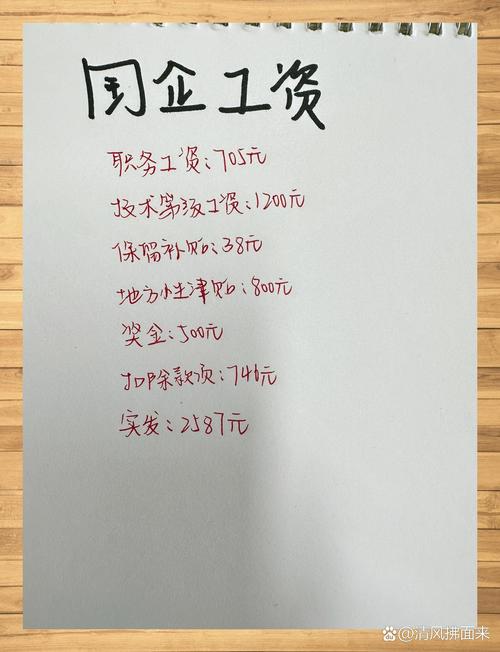 国企工资
职务工资：705元
技术等级工资：1200元
保留补贴：38元
地方性津贴：800元
奖金：500元
扣除款项：746元
实发：2587元
@清风拂面来